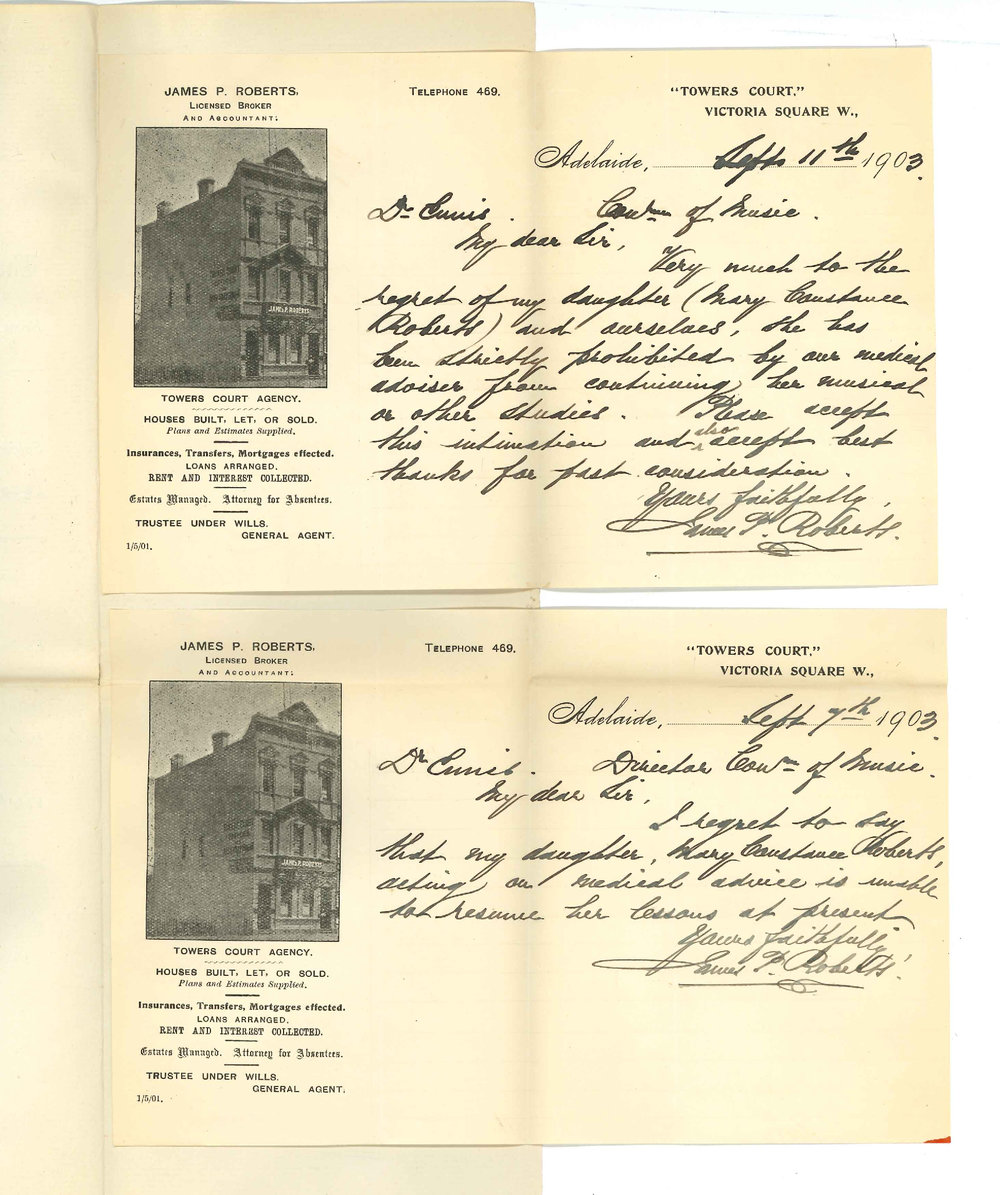 JAMES P. ROBERTS,
LICENSED BROKER
AND ACCOUNTANT;
JAMES P. ROBERTS
TOWERS COURT AGENCY.
HOUSES BUILT, LET, OR SOLD.
Plans and Estimates Supplied.
Insurances, Transfers, Mortgages effected.
LOANS ARRANGED.
RENT AND INTEREST COLLECTED.
Estates Managed. Attorney for Absentees.
TRUSTEE UNDER WILLS.
GENERAL AGENT.
1/5/01.
TELEPHONE 469.
"TOWERS COURT,"
VICTORIA SQUARE W.,
Adelaide, Sept 11th 1903.
Dr Ennis. Conm of Music.
My dear Sir,
Very much to the
regret of my daughter (Mary Constance
Roberts) and ourselves, she has
been strictly prohibited by our medical
adviser from continuing her musical
or other studies. Please accept
this intimation and also accept best
thanks for past consideration.
Yours faithfully,
James P. Roberts.
JAMES P. ROBERTS,
LICENSED BROKER
AND ACCOUNTANT;
JAMES P. ROBERTS
TOWERS COURT AGENCY.
HOUSES BUILT, LET, OR SOLD.
Plans and Estimates Supplied.
Insurances, Transfers, Mortgages effected.
LOANS ARRANGED.
RENT AND INTEREST COLLECTED.
Estates Managed. Attorney for Absentees.
TRUSTEE UNDER WILLS.
GENERAL AGENT.
1/5/01.
TELEPHONE 469.
"TOWERS COURT,"
VICTORIA SQUARE W.,
Adelaide, Sept 7th 1903.
Dr Ennis. Director Conm of Music.
My dear Sir,
I regret to say
that my daughter, Mary Constance Roberts,
acting on medical advice is unable
to resume her lessons at present
Yours faithfully
James P. Roberts.